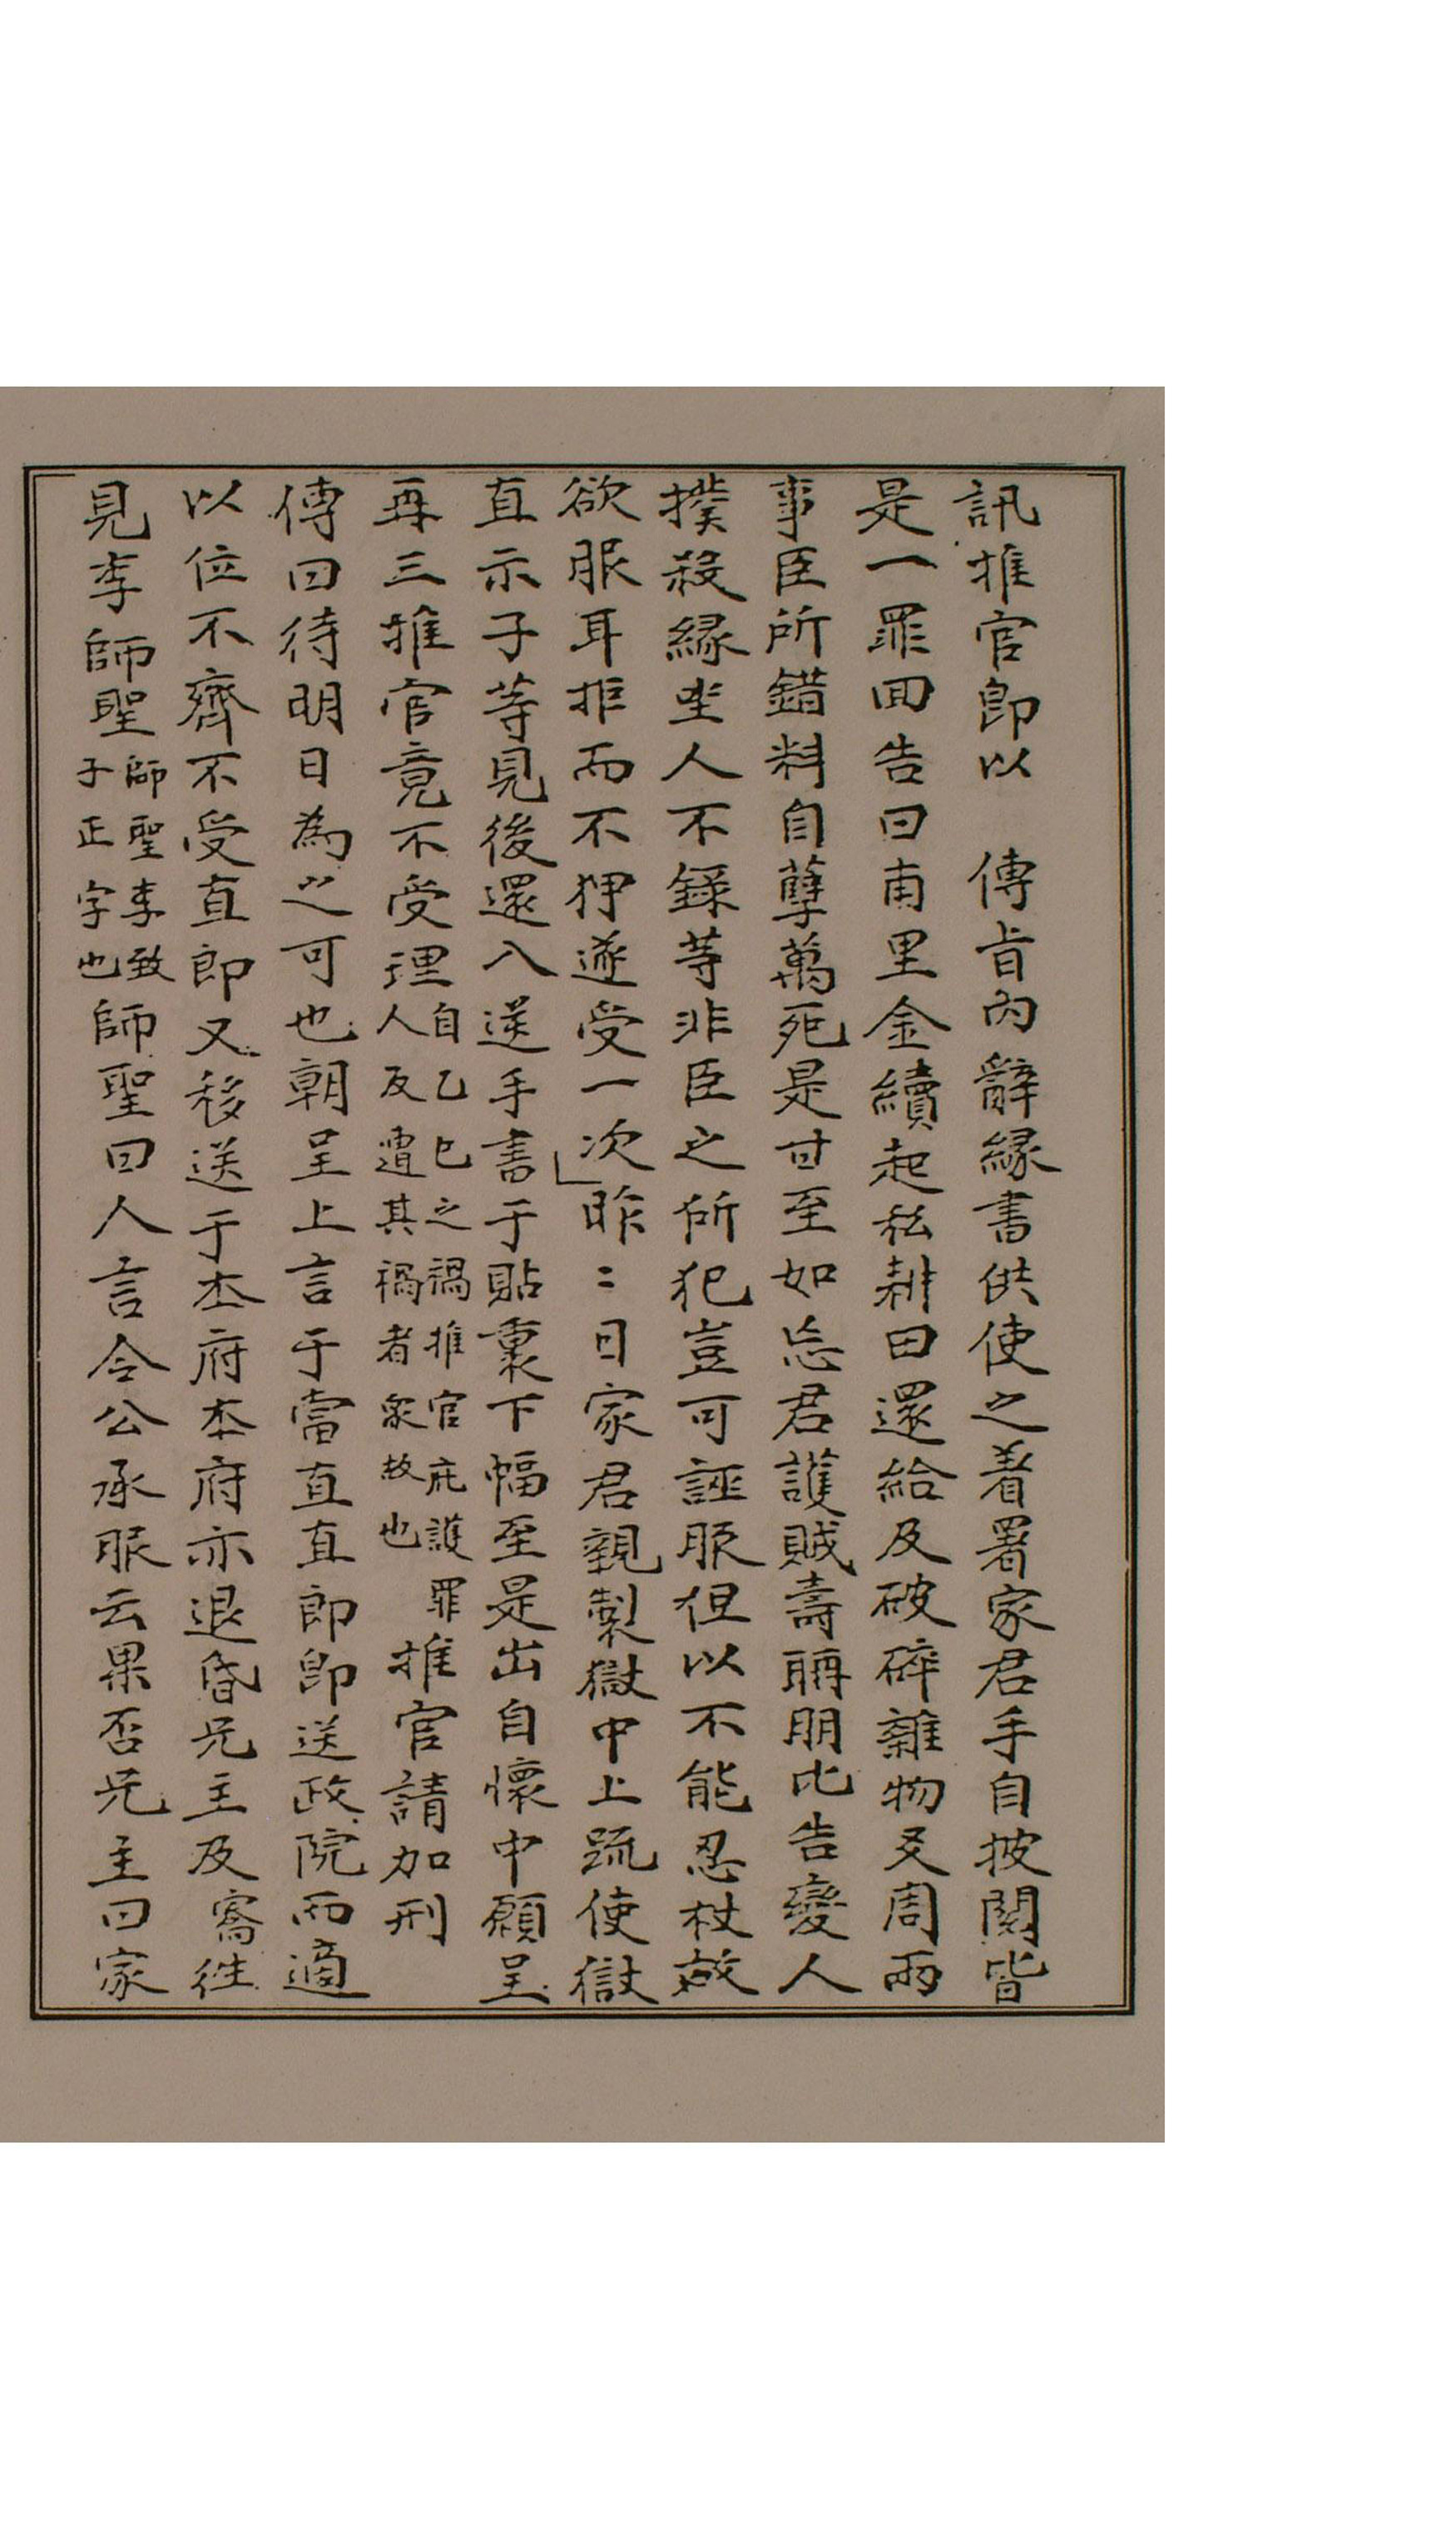 訊推官即以　傳旨內辭緣書供使之着署家君手自披閱皆
是一罪回告曰甫里金續起私耕田還給及破碎雜物及周兩
事臣所錯料自孽萬死是甘至如忘君護賊壽聃朋比告變人
撲殺緣坐人不錄等非臣之所犯豈可誣服但以不能忍杖故
欲服耳拒而不狎遂受一次昨〻日家君親製獄中上疏使獄
直示子等見後還入送手書于貼裏下幅至是出自懷中願呈
再三推官竟不受理自乙巳之禍推官庇護罪人反遭其禍者衆故也推官請加刑
傳曰待明日為之可也朝呈上言于當直直即即送政院而適
以位不齊不受直即又移送于本府本府亦退昏兄主及騫往
見李師聖師聖李致子正字也師聖曰人言令公承服云果否兄主曰家